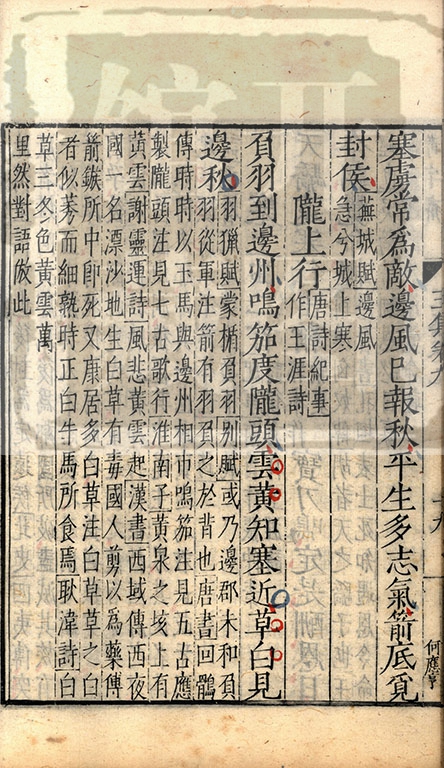 塞虜常爲敵邊風已報秋平生多志氣箭底覓
封侯
蕪城賦邊風
急兮城上寒
隴上行
唐詩紀事
作王涯詩
負羽到邊州鳴笳度隴頭雲黃知塞近草白見
邊秋
羽獵賦蒙楯負羽別賦或乃邊郡未和負
羽從軍注箭有羽負之於背也唐書回鶻
傳時時以玉馬與邊州相市鳴笳注見五古應
製隴頭注見七古歌行淮南子黃泉之埃上有
黃雲謝靈運詩風悲黃雲起漢書西域傳西夜
國一名漂沙地生白草有毒國人剪以爲藥傅
箭鏃所中卽死又康居多白草注白草草之白
者似莠而細熟時正白牛馬所食焉耿湋詩白
草三冬色黃雲萬
里然對語倣此